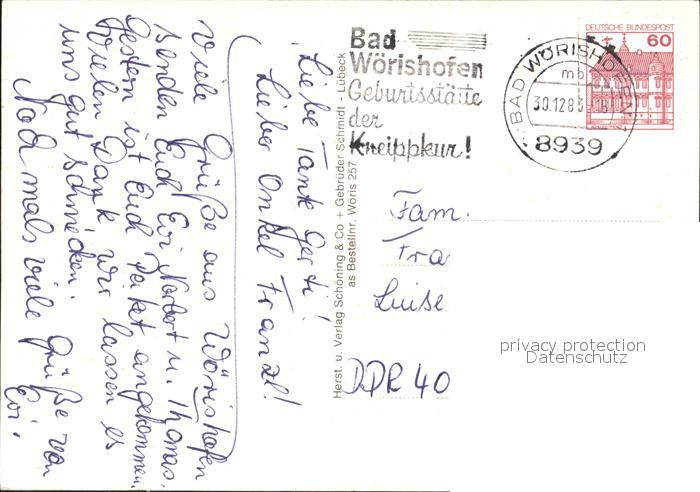 Liebe Tante Gerti!
Lieber Onkel Franzl!
Viele Grüße aus Wörishofen
senden Euch Evi Norbert u. Thomas.
Gestern ist Euer Paket angekommen
Vielen Dank wir lassen es
uns gut schmecken.
Noch mals viele Grüße von
Evi.
Herst. u. Verlag Schöning & Co + Gebrüder Schmidt - Lübeck
as Bestellnr. Wöris 257
Bad
Wörishofen
Geburtsstätte
der
Kneippkur!
BAD WÖRISHOFEN 1
mb
30.12.8
8939
DEUTSCHE BUNDESPOST
60
Fam.
Fra
Luise
DDR 40
privacy protection
Datenschutz